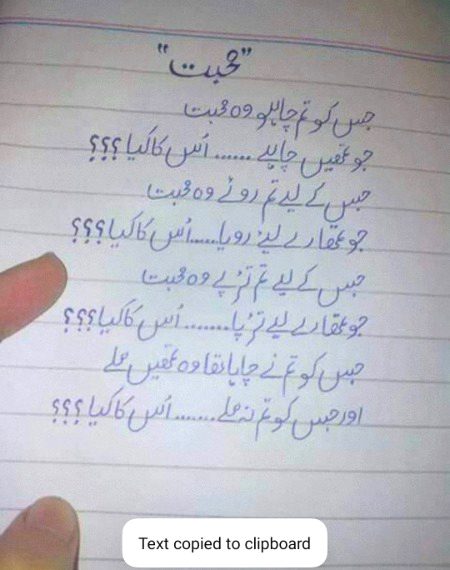 "محبت"
جس کو تم چاہو وہ محبت
جو تمھیں چاہے ...... اُس کا کیا ؟؟؟
جس کے لیے تم روئے وہ محبت
جو تمھارے لیئے رویا ..... اُس کا کیا ؟؟؟
جس کے لیے تم تڑپے وہ محبت
جو تمھارے لیے تڑپا ....... اُس کا کیا ؟؟؟
جس کو تم نے چاہا تھا وہ تمھیں ملے
اور جس کو تم نہ ملے ....... اُس کا کیا ؟؟؟
Text copied to clipboard